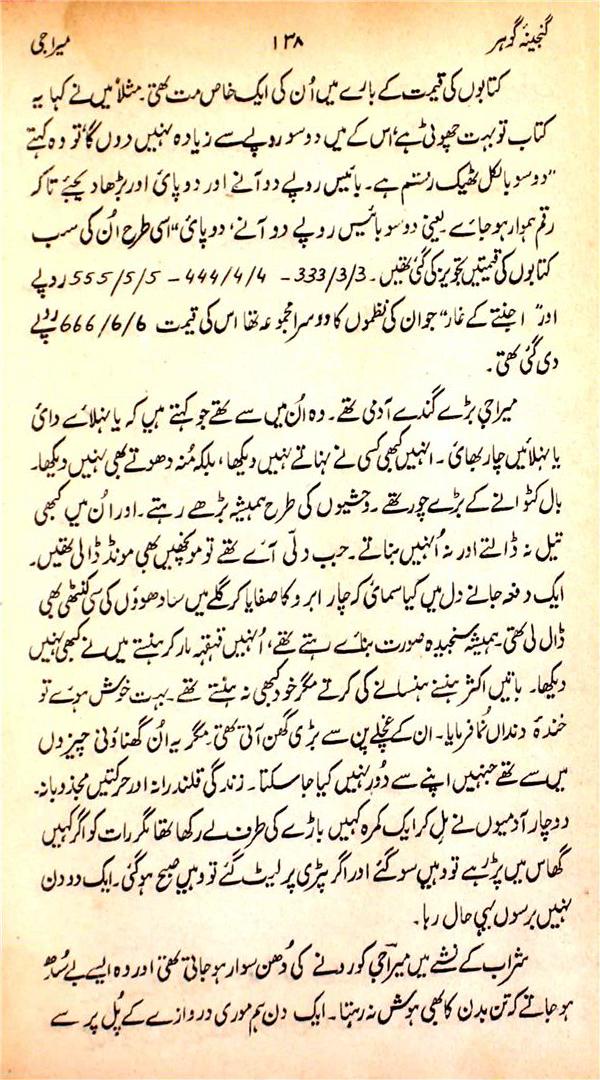 گنجینۂ گوہر ۱۳۸ میراجی
کتابوں کی قیمت کے بارے میں اُن کی ایک خاص مت تھی۔ مثلاً میں نے کہا یہ
کتاب تو بہت چھوٹی ہے، اس کے میں دو سو روپے سے زیادہ نہیں دوں گا، تو وہ کہتے
"دو سو بالکل ٹھیک رقم ہے۔ بائیس روپے دو آنے اور دو پائی اور بڑھا دیجئے تاکہ
رقم ہموار ہو جائے۔ یعنی دو سو بائیس روپے دو آنے، دو پائی" اسی طرح اُن کی سب
کتابوں کی قیمتیں تجویز کی گئی تھیں۔ 333/3/3 - 444/4/4 - 555/5/5 روپے
اور "اجنتے کے غار" جو ان کی نظموں کا دوسرا مجموعہ تھا اس کی قیمت 666/6/6 روپے
دی گئی تھی۔
میراجی بڑے گندے آدمی تھے۔ وہ اُن میں سے تھے جو کہتے ہیں کہ یا نہلائے دائی
یا نہلائیں چار بھائی۔ انہیں کبھی کسی نے نہاتے نہیں دیکھا، بلکہ مُنہ دھوتے بھی نہیں دیکھا۔
بال کٹوانے کے بڑے چور تھے۔ وحشیوں کی طرح ہمیشہ بڑھے رہتے۔ اور اُن میں کبھی
تیل نہ ڈالتے اور نہ اُنہیں بناتے۔ جب دلّی آئے تھے تو مونچھیں بھی مونڈ ڈالی تھیں۔
ایک دفعہ جانے دل میں کیا سمائی کہ چار ابرو کا صفایا کر گلے میں سادھوؤں کی سی کنٹھی بھی
ڈال لی تھی۔ ہمیشہ سنجیدہ صورت بنائے رہتے تھے، اُنہیں قہقہہ مار کر ہنستے میں نے کبھی نہیں
دیکھا۔ باتیں اکثر ہنسنے ہنسانے کی کرتے مگر خود کبھی نہ ہنستے تھے۔ بہت خوش ہوئے تو
خندۂ دنداں نُما فرمایا۔ ان کے غچلے پن سے بڑی گھن آتی تھی۔ مگر یہ اُن گھناؤنی چیزوں
میں سے تھے جنہیں اپنے سے دُور نہیں کیا جا سکتا۔ زندگی قلندرانہ اور حرکتیں مجذوبانہ۔
دو چار آدمیوں نے مِل کر ایک کمرہ کہیں باڑے کی طرف لے رکھا تھا مگر رات کو اگر کہیں
گھاس میں پڑ رہے تو وہیں سو گئے اور اگر پٹری پر لیٹ گئے تو وہیں صبح ہو گئی۔ ایک دو دن
نہیں برسوں یہی حال رہا۔
شراب کے نشے میں میراجی کو رونے کی دُھن سوار ہو جاتی تھی اور وہ ایسے بے سُدھ
ہو جاتے کہ تن بدن کا بھی ہوش نہ رہتا۔ ایک دن ہم موری دروازے کے پُل پر سے